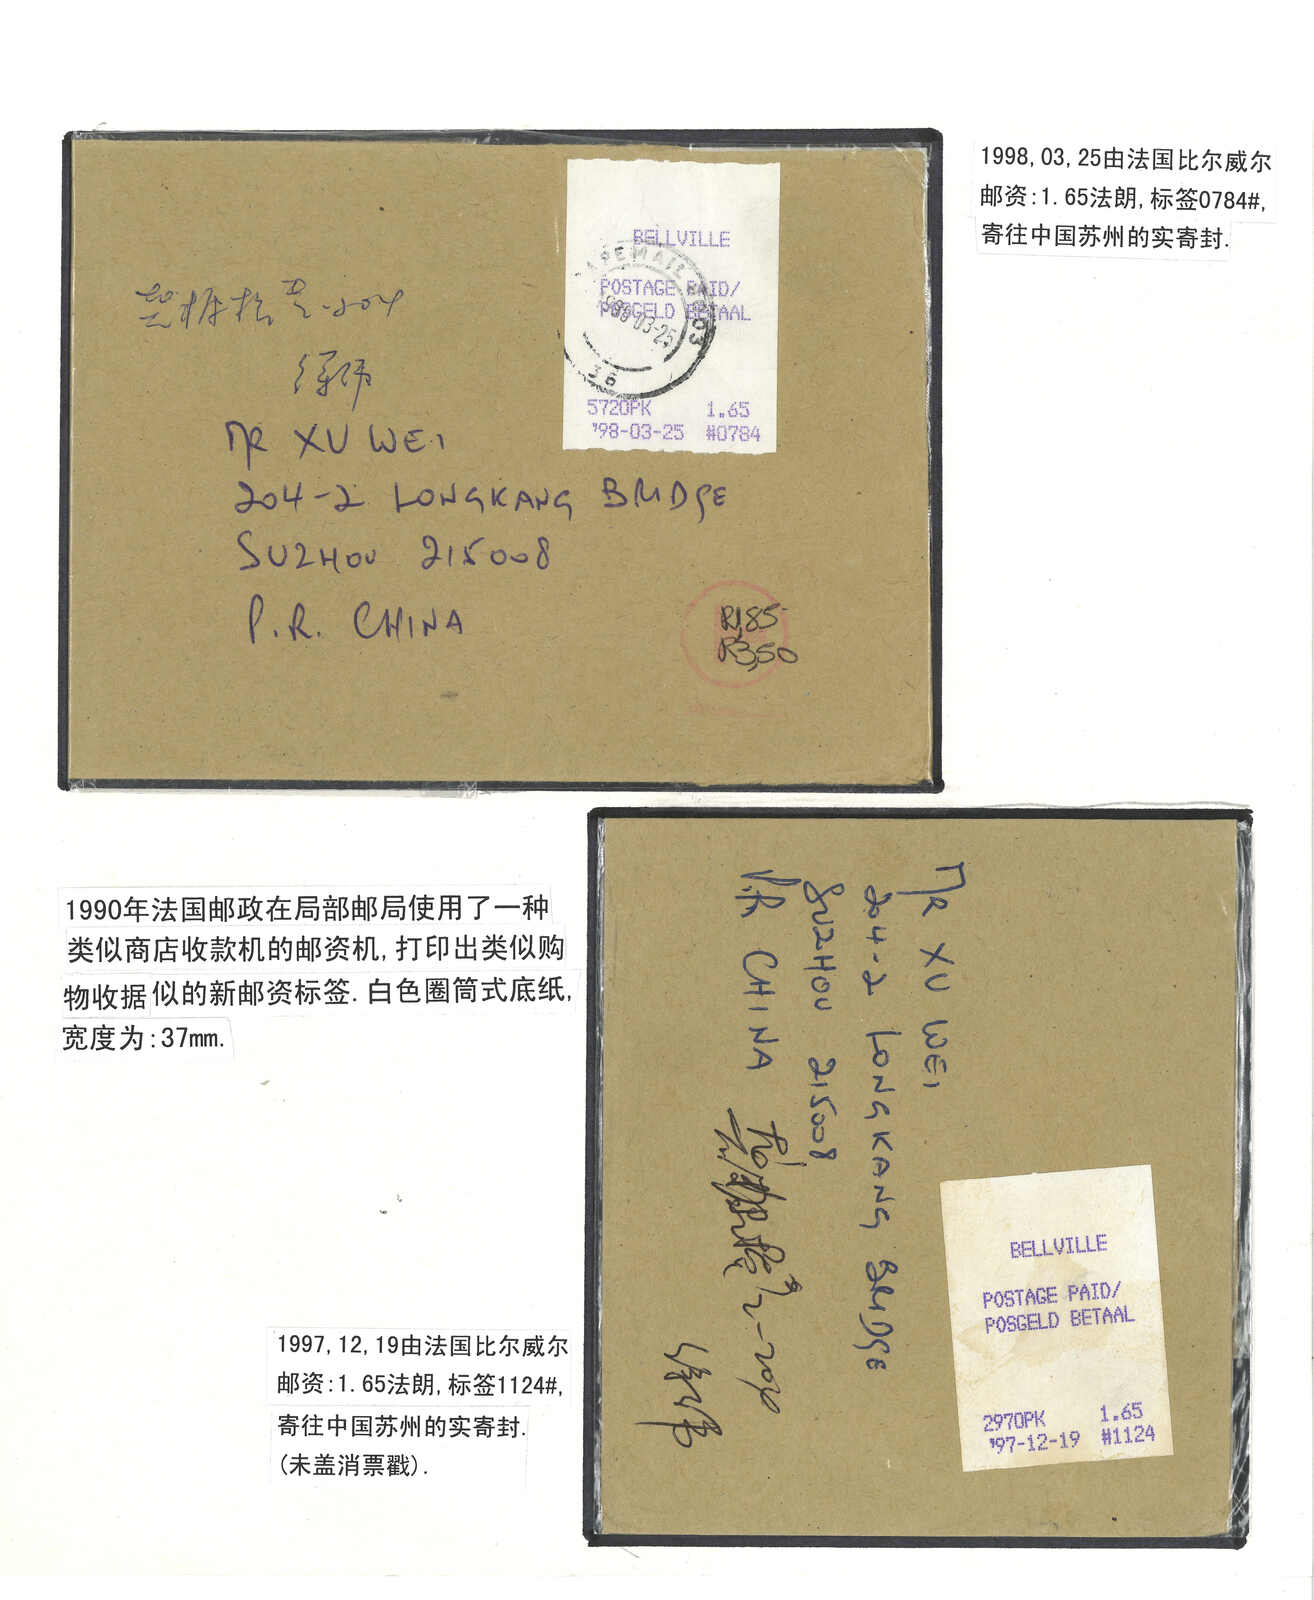 1998,03,25由法国比尔威尔
邮资:1.65法朗,标签0784#,
寄往中国苏州的实寄封.
BELLVILLE
POSTAGE PAID/
POSGELD BETAAL
5720PK 1.65
'98-03-25 #0784
CAPEMAIL
1998-03-25
36
徐伟
MR XU WEI
204-2 LONGKANG BRIDGE
SUZHOU 215008
P.R. CHINA
R1,85
R3,50
1990年法国邮政在局部邮局使用了一种
类似商店收款机的邮资机,打印出类似购
物收据似的新邮资标签.白色圈筒式底纸,
宽度为:37mm.
MR XU WEI
204-2 LONGKANG BRIDGE
SUZHOU 215008
P.R. CHINA
徐伟
BELLVILLE
POSTAGE PAID/
POSGELD BETAAL
2970PK 1.65
'97-12-19 #1124
1997,12,19由法国比尔威尔
邮资:1.65法朗,标签1124#,
寄往中国苏州的实寄封.
(未盖消票戳).